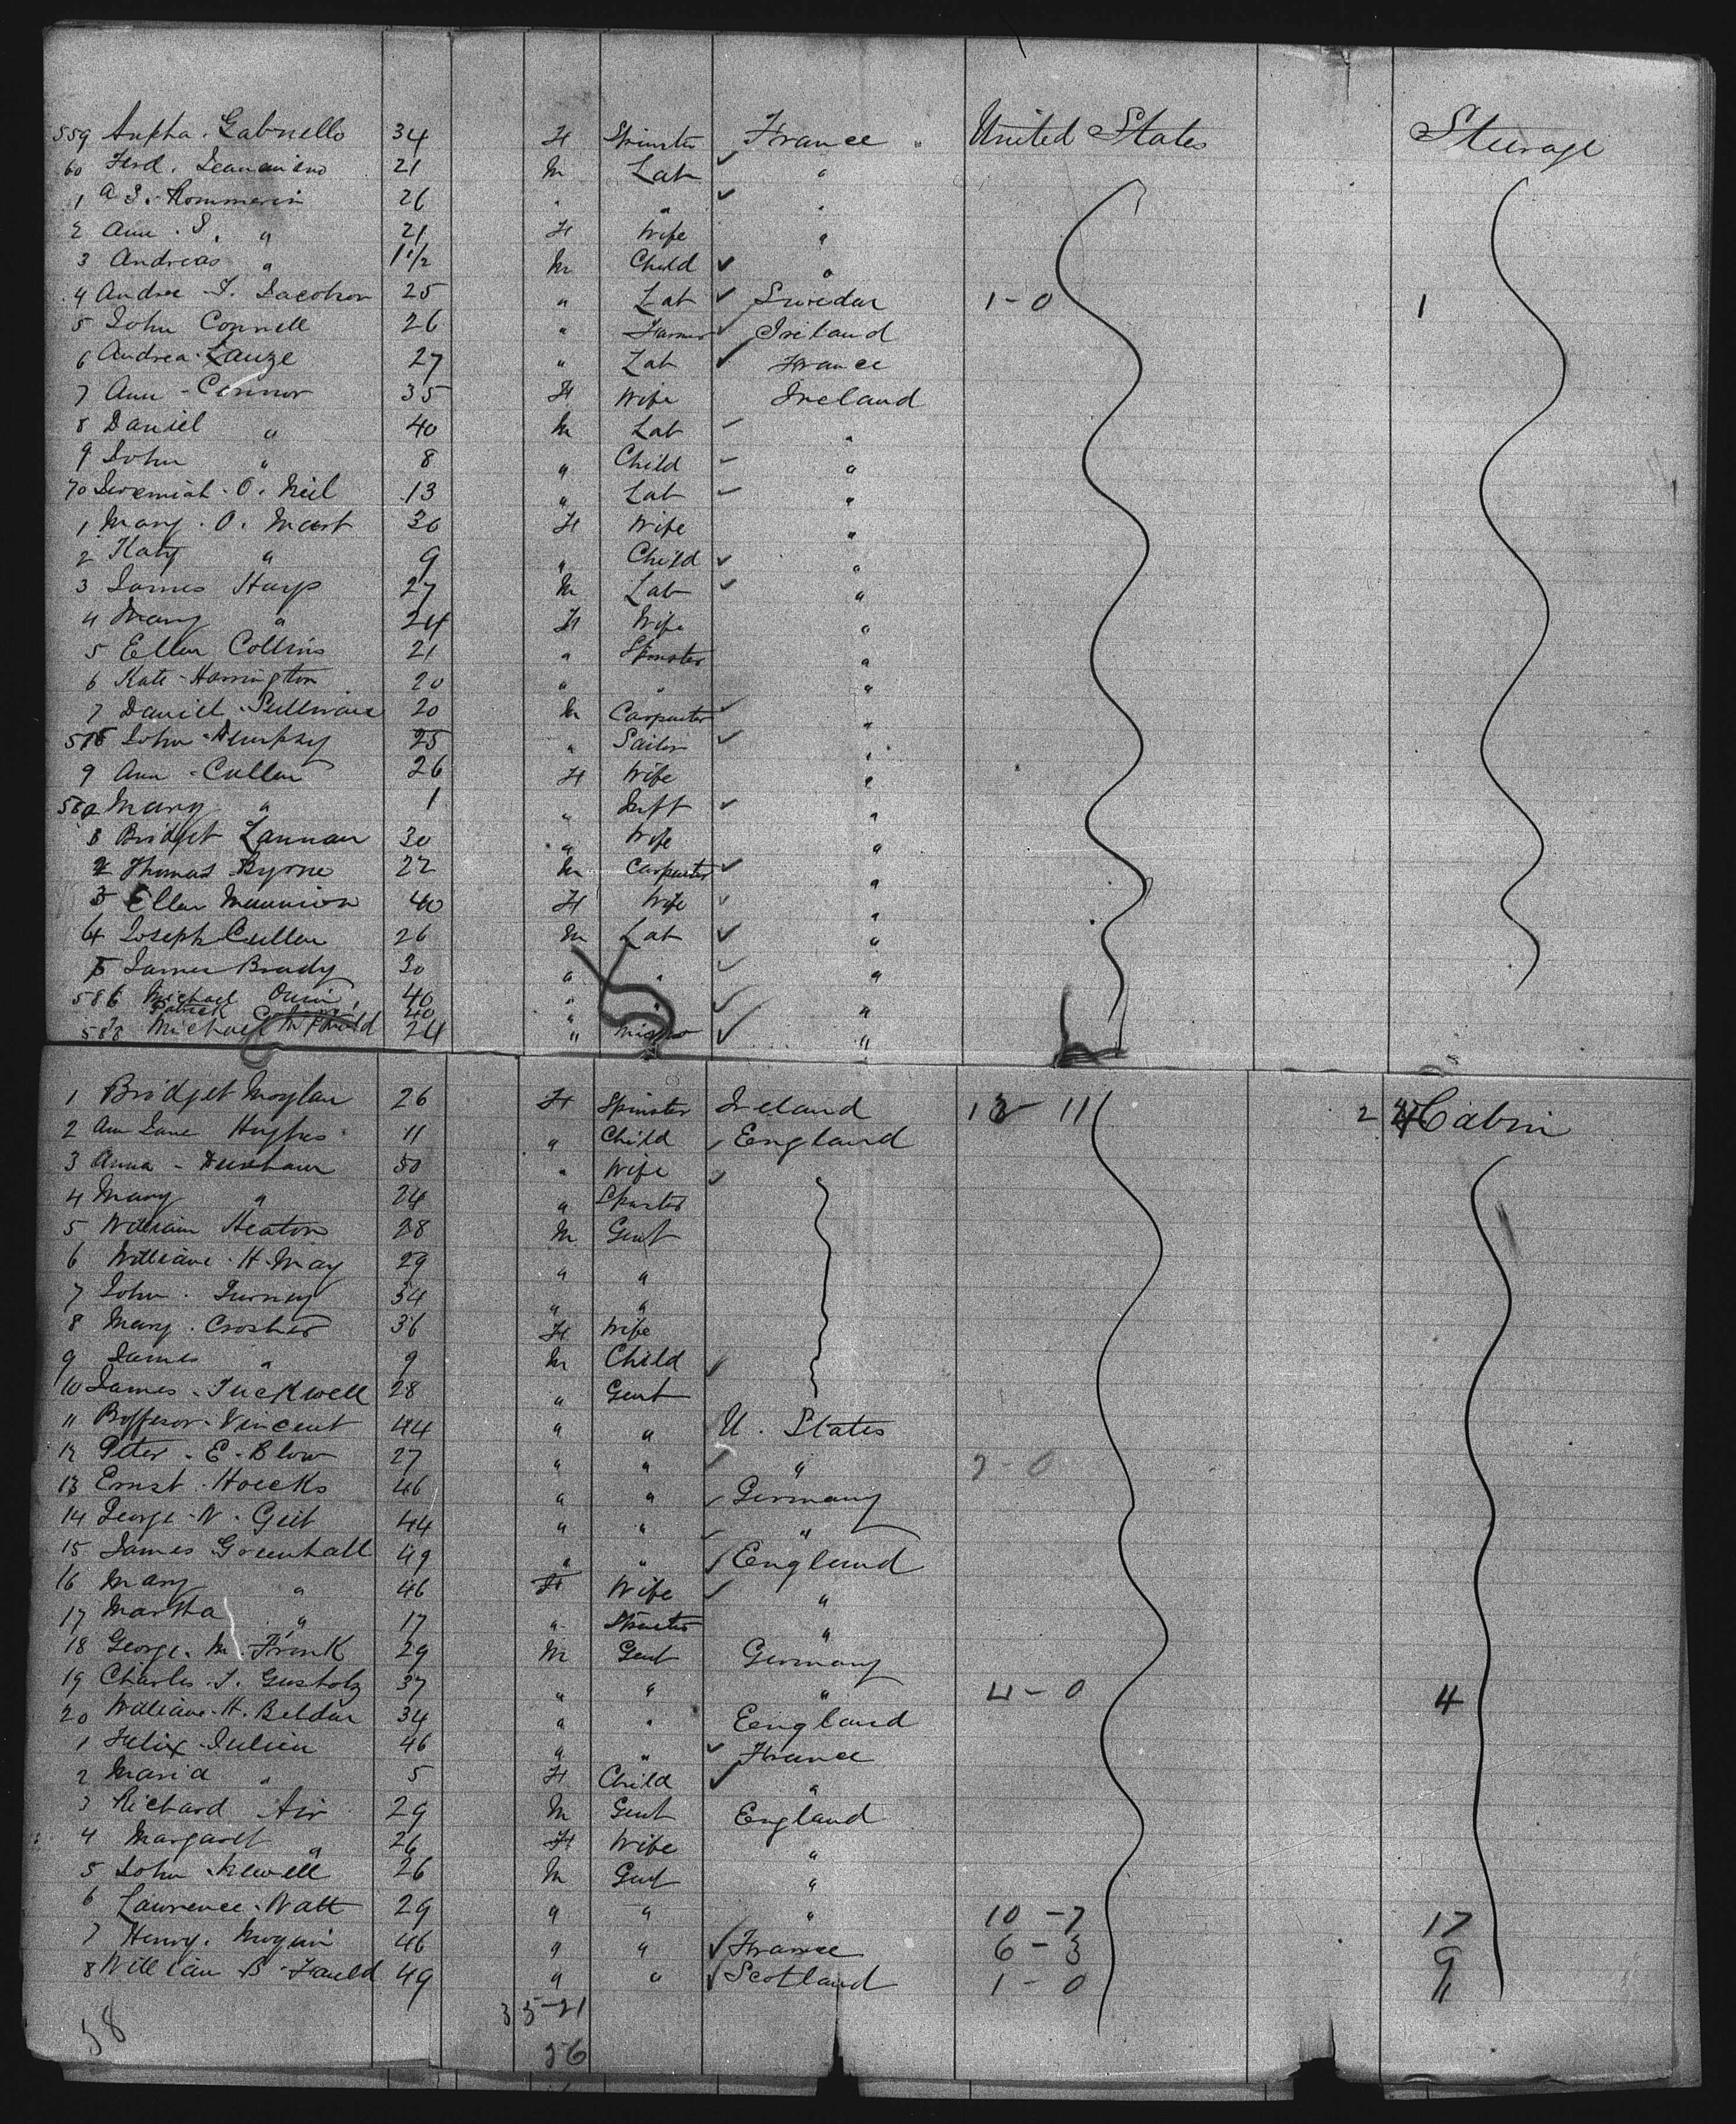 559 Gabriello 34 F Spinster France " United States Steerage
60 Ferd. 21 M Lab "
1 A S. Rommerin 26 " " "
2 Ann . S. " 21 F Wife "
3 Andreas " 1 1/2 M Child "
4 Andrea . Jacobson 25 " Lab Sweden 1-0 1
5 John Connell 26 " Farmer Ireland
6 Andrea Lauze 27 " Lab France
7 Ann - Connor 35 F Wife Ireland
8 Daniel " 40 M Lab "
9 John " 8 " Child "
70 Jeremiah . O. Neil 13 " Lab "
1 Mary . O. 30 F Wife "
2 Katy " 9 " Child "
3 James Hays 27 M Lab "
4 Mary " 24 F Wife "
5 Ellen Collins 21 " Spinster "
6 Kate - Harrington 20 " " "
7 Daniel . Sullivan 20 M Carpenter "
578 John Murphy 25 " Sailor "
9 Ann - Cullen 26 F Wife "
580 Mary " 1 " Inft "
Bridget Lannan 30 " Wife "
2 Thomas Byrne 22 M Carpenter "
3 Ellen Mannion 40 F Wife "
4 Joseph Cullen 26 M Lab "
5 James Brady 30 " " "
586 Michael Quin 40 " " "
Patrick 40
588 Michael 24 " "
1 Bridget Moylan 26 F Spinster Ireland 11 2 Cabin
2 Ann Jane Hughes 11 " Child England
3 Anna - 50 " Wife
4 Mary " 24 " Spinster
5 William Heaton 28 M Gent
6 William . H. May 29 " "
7 John . 54 " "
8 Mary . Crosher 36 F Wife
9 James " 9 M Child
10 James . Tuckwell 28 " Gent
11 Proffesor . Vincent 44 " " U. States
12 Peter . E . Blow 27 " " " 2-0
13 Ernst . Hoecks 46 " " Germany
14 George . N . Geit 44 " " "
15 James Greenhall 49 " " England
16 Mary " 46 F Wife "
17 Martha " 17 " Spinster "
18 George . M Frank 29 M Gent Germany
19 Charles . J. 37 " " " 4-0 4
20 William . H. Beldan 34 " " England
1 Felix . Julien 46 " " France
2 Maria " 5 F Child "
3 Richard Air 29 M Gent England
4 Margaret " 26 F Wife "
5 John Newell 26 M Gent "
6 Lawrence . Watt 29 " " " 10-7 17
7 Henry . 46 " " France 6-3 9
8 William B . Fauld 49 " " Scotland 1-0
35-21
58
56